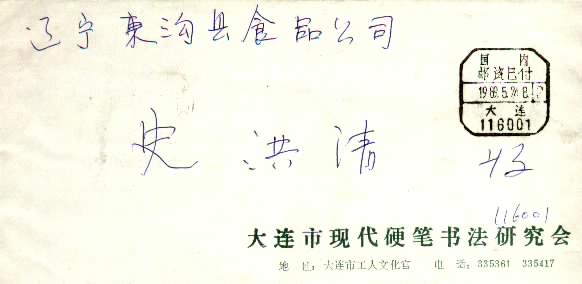 辽宁东沟县食品公司
国内
邮资已付
1989.5.24.8
大连
116001
史洪清 收
116001
大连市现代硬笔书法研究会
地 址：大连市工人文化宫 电 话：335361 335417